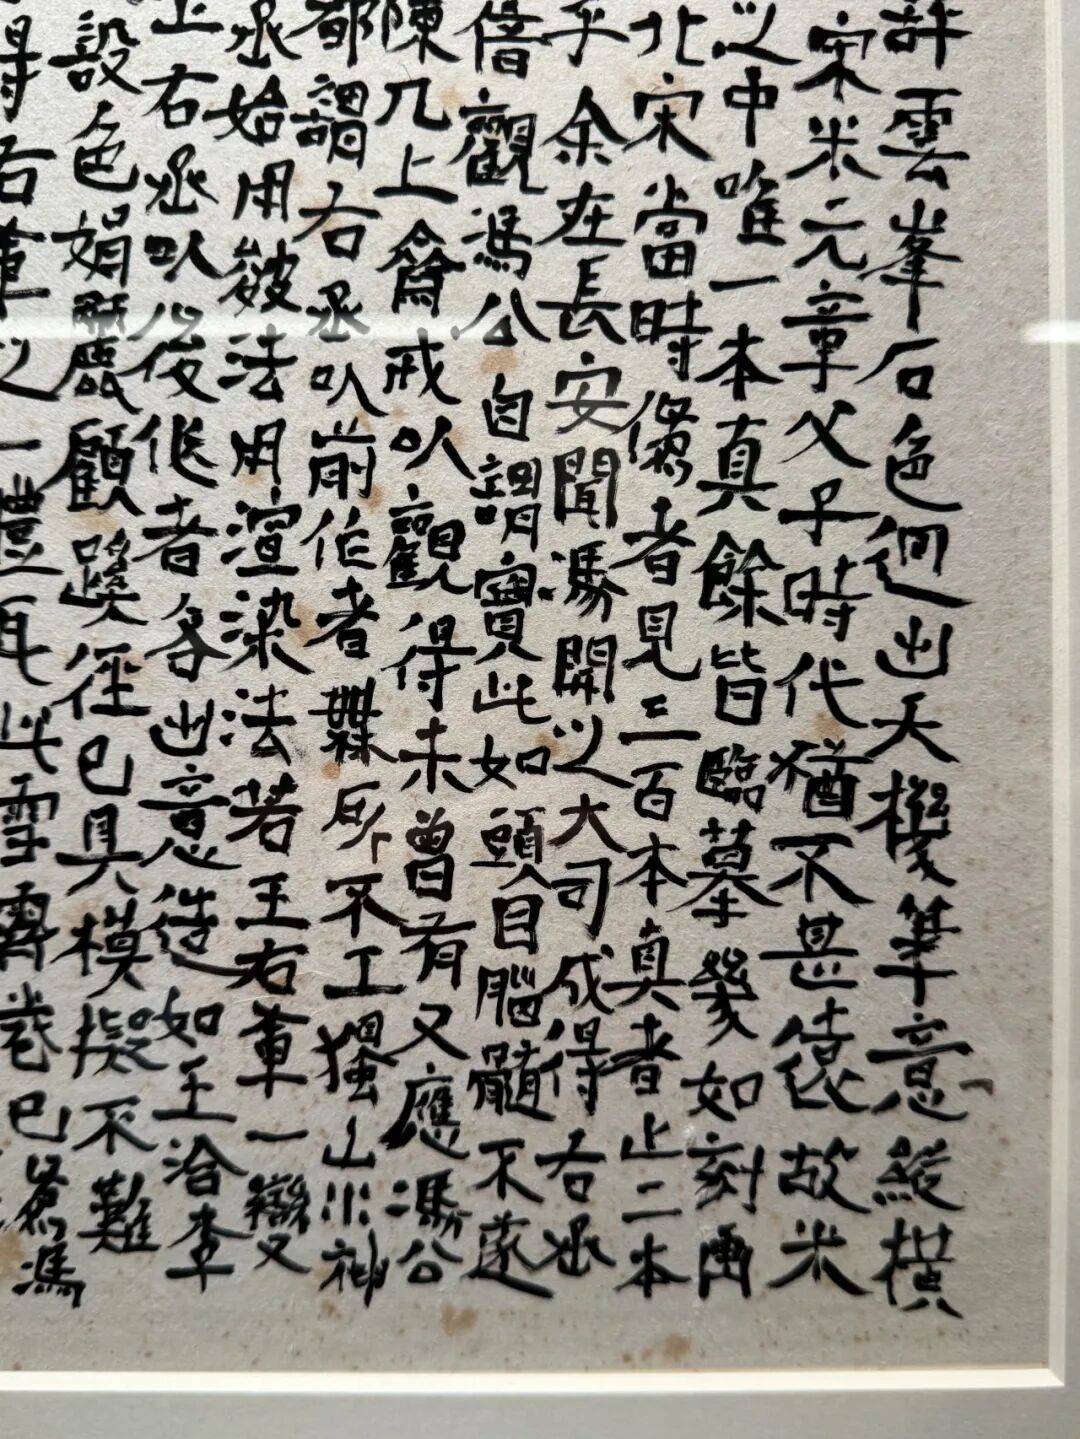 評雲峯石色迥出天機筆意縱橫
宋米元章父子時代猶不甚遠故米
之中唯一本真餘皆臨摹幾如刻畫
北宋當時儁者見二三百本真者止二本
乎余在長安聞馮開之大司成得右丞
借觀馮公自謂寶此如頭目腦髓不遂
陳几上齋戒以觀得未曾有又應馮公
都謂右丞以前作者無所不工獨山水神
丞始用皴法用渲染法若王右軍一變
右丞以後作者各出意造如王洽李
設色娟麗顧蹊徑已具模擬不難
得右軍之一體耳此雪霽卷已爲馮